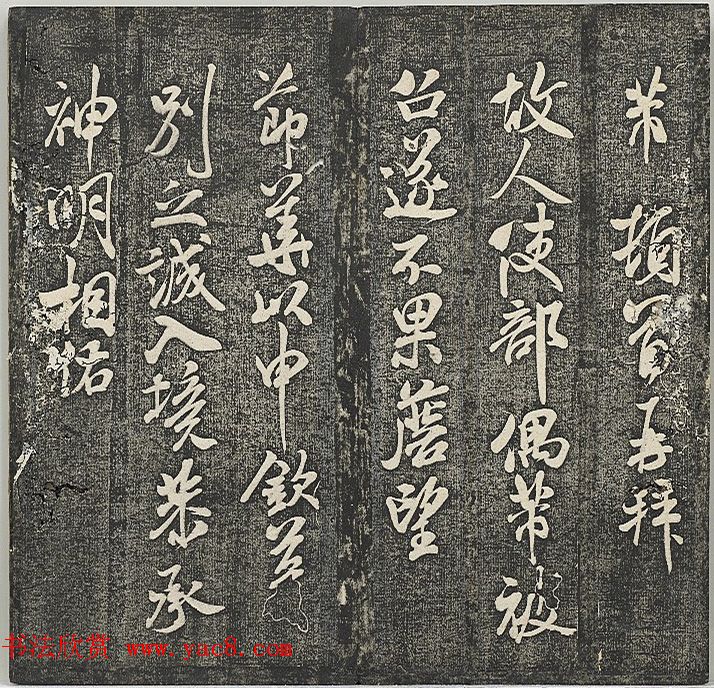 芾頓首再拜
故人使部偶芾被
召遂不果詹望
節華以申欽
別之誠入境恭承
神明相
书法欣赏 www.yac8.com